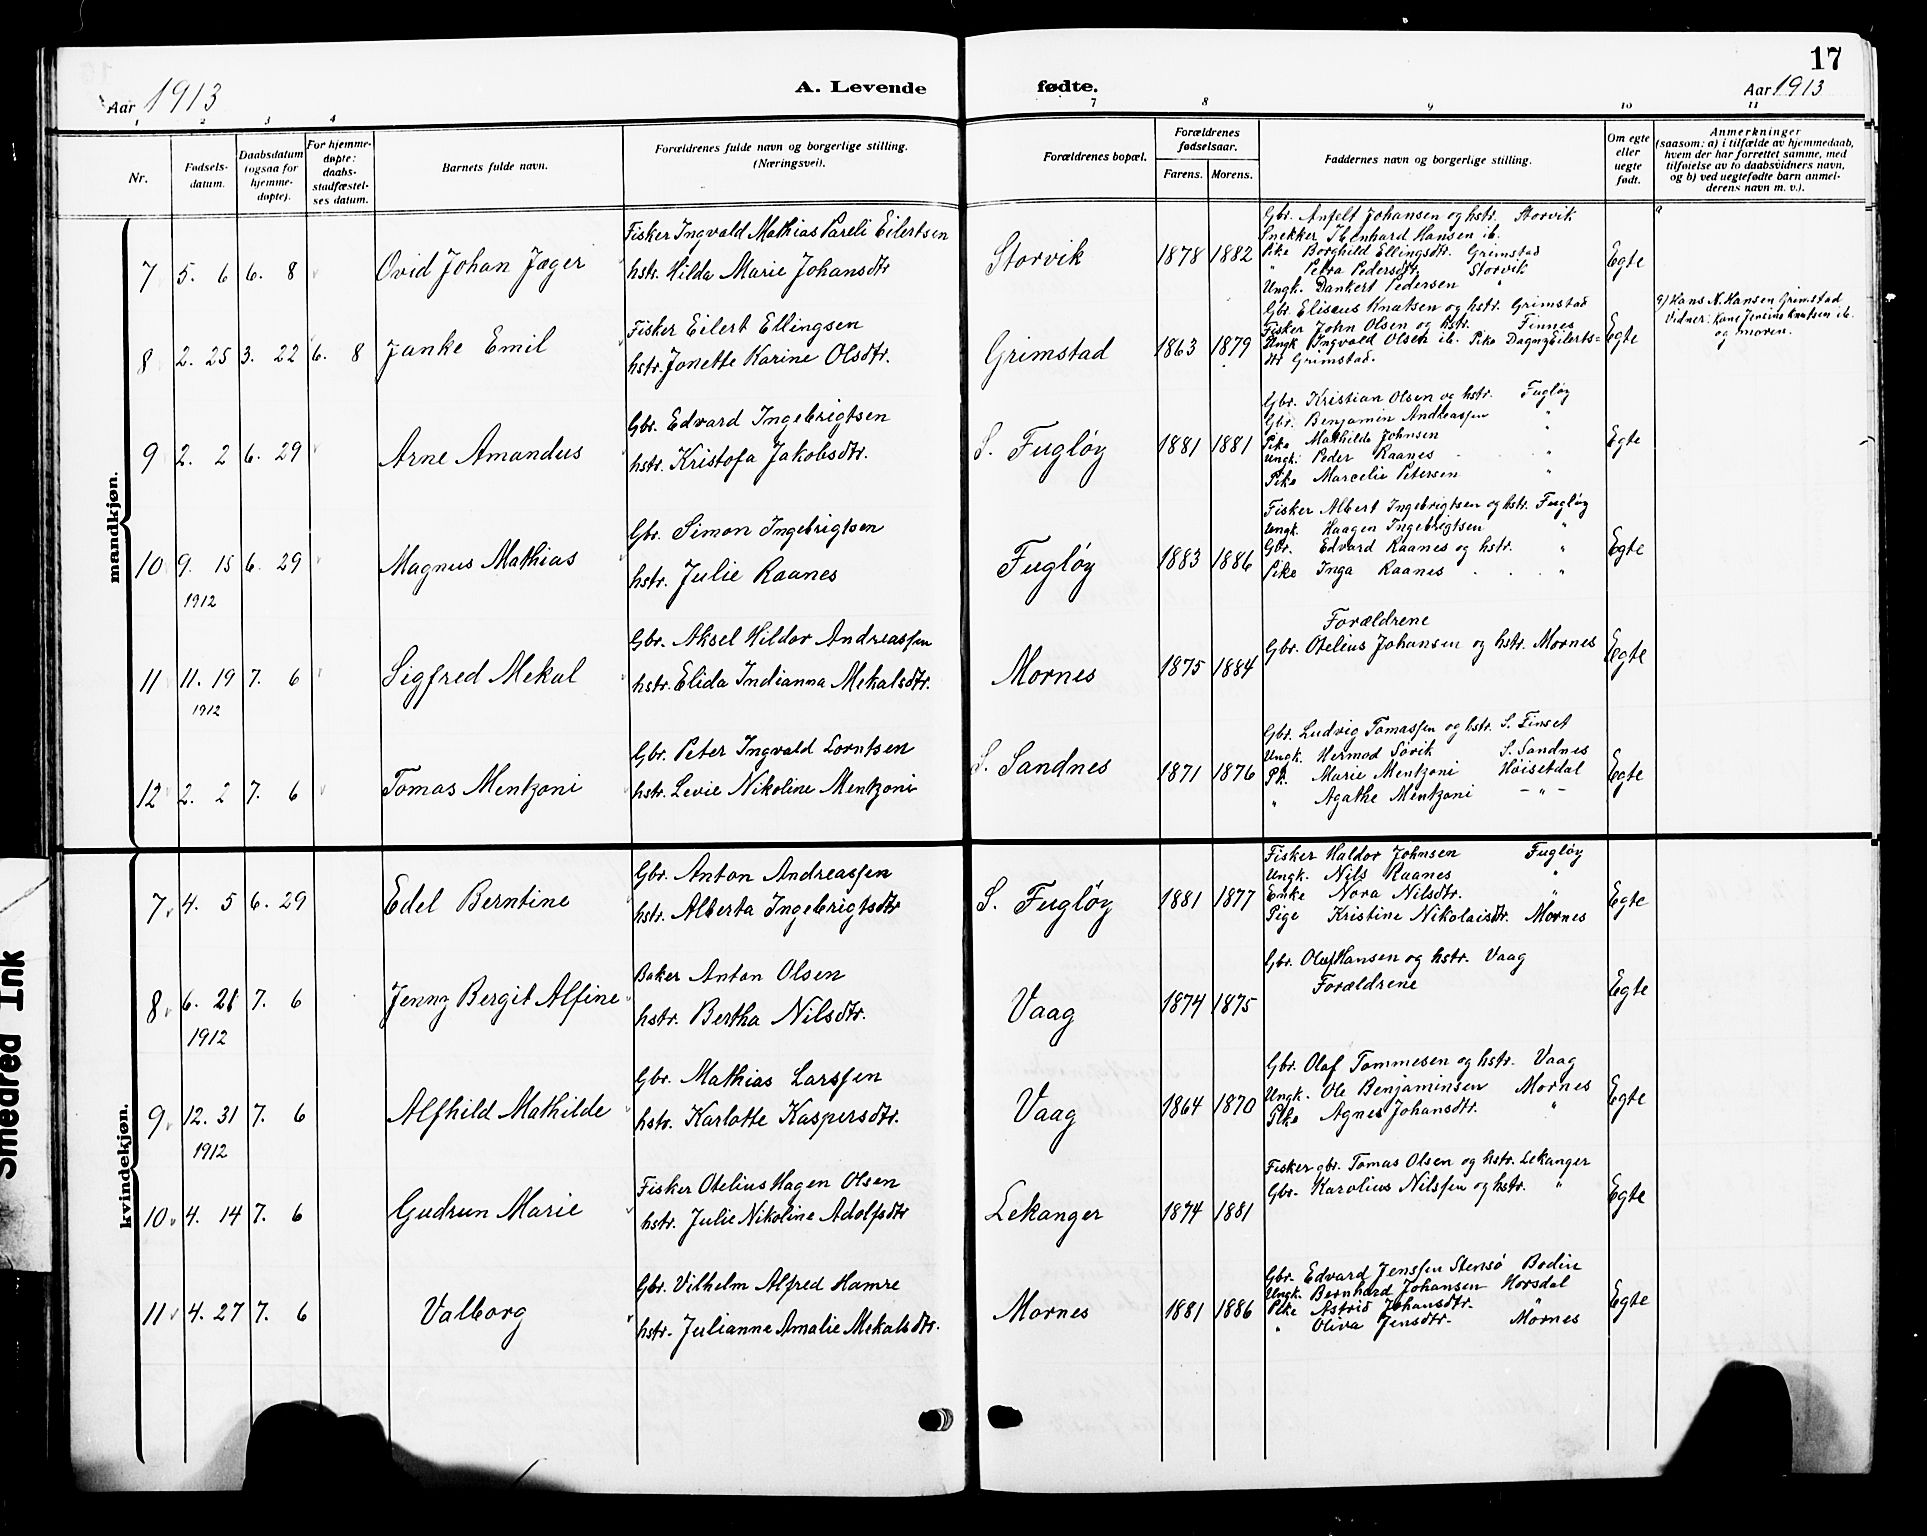 17
Aar 1913 A. Levende fødte. Aar 1913
1 2 3 4 7 8 9 10 11
Nr.
Fødsels-
datum.
Daabsdatum
(ogsaa for
hjemme-
døpte).
For hjemme-
døpte:
daabs-
stadfæstel-
ses datum.
Barnets fulde navn.
Forældrenes fulde navn og borgerlige stilling.
(Næringsvei).
Forældrenes bopæl.
Forældrenes
fødselsaar.
Farens. Morens.
Faddernes navn og borgerlige stilling.
Om egte
eller
uegte
født.
Anmerkninger
(saasom: a) i tilfælde av hjemmedaab,
hvem der har forrettet samme, med
tilføielse av to daabsvidners navn,
og b) ved uegtefødte barn anmel-
derens navn m. v.).
mandkjøn.
7 5. 6 6. 8 Ovid Johan Jæger
Fisker Ingvald Mathias Pareli Eilertsen
hstr. Hilda Marie Johansdtr
Storvik 1878 1882
Gbr. Anfelt Johansen og hstr. Storvik
Snekker Ibenhard Hansen ib.
Pike Borghild Ellingsdtr. Grimstad
" Petra Pedersdtr. Storvik
Ungk. Dankert Pedersen "
Egte
8 2. 25 3. 22 6. 8 Janke Emil
Fisker Eilert Ellingsen
hstr. Jonette Karine Olsdtr.
Grimstad 1863 1879
Gbr. Eliseus Knutsen og hstr. Grimstad
Fisker John Olsen og hstr. Finnes
Ungk Ingvald Olsen ib. Pike Dagny Eilerts-
dtr Grimstad.
Egte
a) Hans N. Hansen Grimstad
Vidner: Kone Jensine Knutsen ib.
og moren.
9 2. 2 6. 29 Arne Amandus
Gbr. Edvard Ingebrigtsen
hstr. Kristofa Jakobsdtr.
S. Fugløy 1881 1881
Gbr. Kristian Olsen og hstr. Fugløy
Gbr. Benjamin Andreassen "
Pike Mathilde Johnsen "
Ungk. Peder Raanes "
Pike Marcelie Petersen "
Egte
10 9. 15 6. 29 Magnus Mathias
1912
Gbr. Simon Ingebrigtsen
hstr. Julie Raanes
Fugløy 1883 1886
Fisker Albert Ingebrigtsen og hstr. Fugløy
Ungk. Haagen Ingebrigtsen "
Gbr. Edvard Raanes og hstr. "
Pike Inga Raanes "
Egte
11 11. 19 7. 6 Sigfred Mekal
1912
Gbr. Aksel Hildor Andreassen
hstr. Elida Indianna Mekalsdtr.
Mornes 1875 1884
Forældrene
Gbr. Otelius Johansen og hstr. Mornes
Egte
12 2. 2 7. 6 Tomas Mentzoni
Gbr. Peter Ingvald Lorntsen
hstr. Levie Nikoline Mentzoni
S. Sandnes 1871 1876
Gbr. Ludvig Tomassen og hstr. S. Finset
Ungk. Hermod Sørvik S. Sandnes
Pk. Marie Mentzoni Høisetdal
" Agathe Mentzoni - " -
Egte
kvindekjøn.
7 4. 5 6. 29 Edel Berntine
Gbr. Anton Andreassen
hstr. Alberta Ingebrigtsdtr
S. Fugløy 1881 1877
Fisker Haldor Johnsen Fugløy
Ungk. Nils Raanes "
Enke Nora Nilsdtr. "
Pige Kristine Nikolaisdtr. Mornes
Egte
8 6. 21 7. 6 Jenny Bergit Alfine
1912
Baker Anton Olsen
hstr. Bertha Nilsdtr.
Vaag 1874 1875
Gbr. Oluf Hansen og hstr. Vaag
Forældrene
Egte
9 12. 31 7. 6 Alfhild Mathilde
1912
Gbr. Mathias Larssen
hstr. Karlotte Kaspersdtr.
Vaag 1864 1870
Gbr. Olaf Tommesen og hstr. Vaag
Ungk. Ole Benjaminsen Mornes
Pike Agnes Johansdtr. "
Egte
10 4. 14 7. 6 Gudrun Marie
Fisker Otelius Hagen Olsen
hstr. Julie Nikoline Adolfsdtr
Lekanger 1874 1881
Fisker gbr. Tomas Olsen og hstr. Lekanger
Gbr. Karolius Nilssen og hstr. "
Egte
11 4. 27 7. 6 Valborg
Gbr. Vilhelm Alfred Hamre
hstr. Julianne Amalie Mekalsdtr.
Mornes 1881 1886
Gbr. Edvard Jenssen Stensø Bodin
Ungk. Bernhard Johansen Horsdal
Pike Astrid Johansdtr. "
" Oliva Jensdtr. Mornes
Egte
Smeared Ink